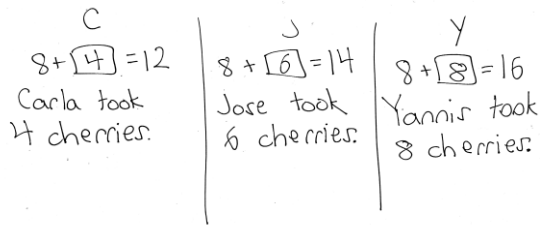 C
8 + 4 = 12
Carla took
4 cherries.
J
8 + 6 = 14
Jose took
6 cherries.
Y
8 + 8 = 16
Yannis took
8 cherries.